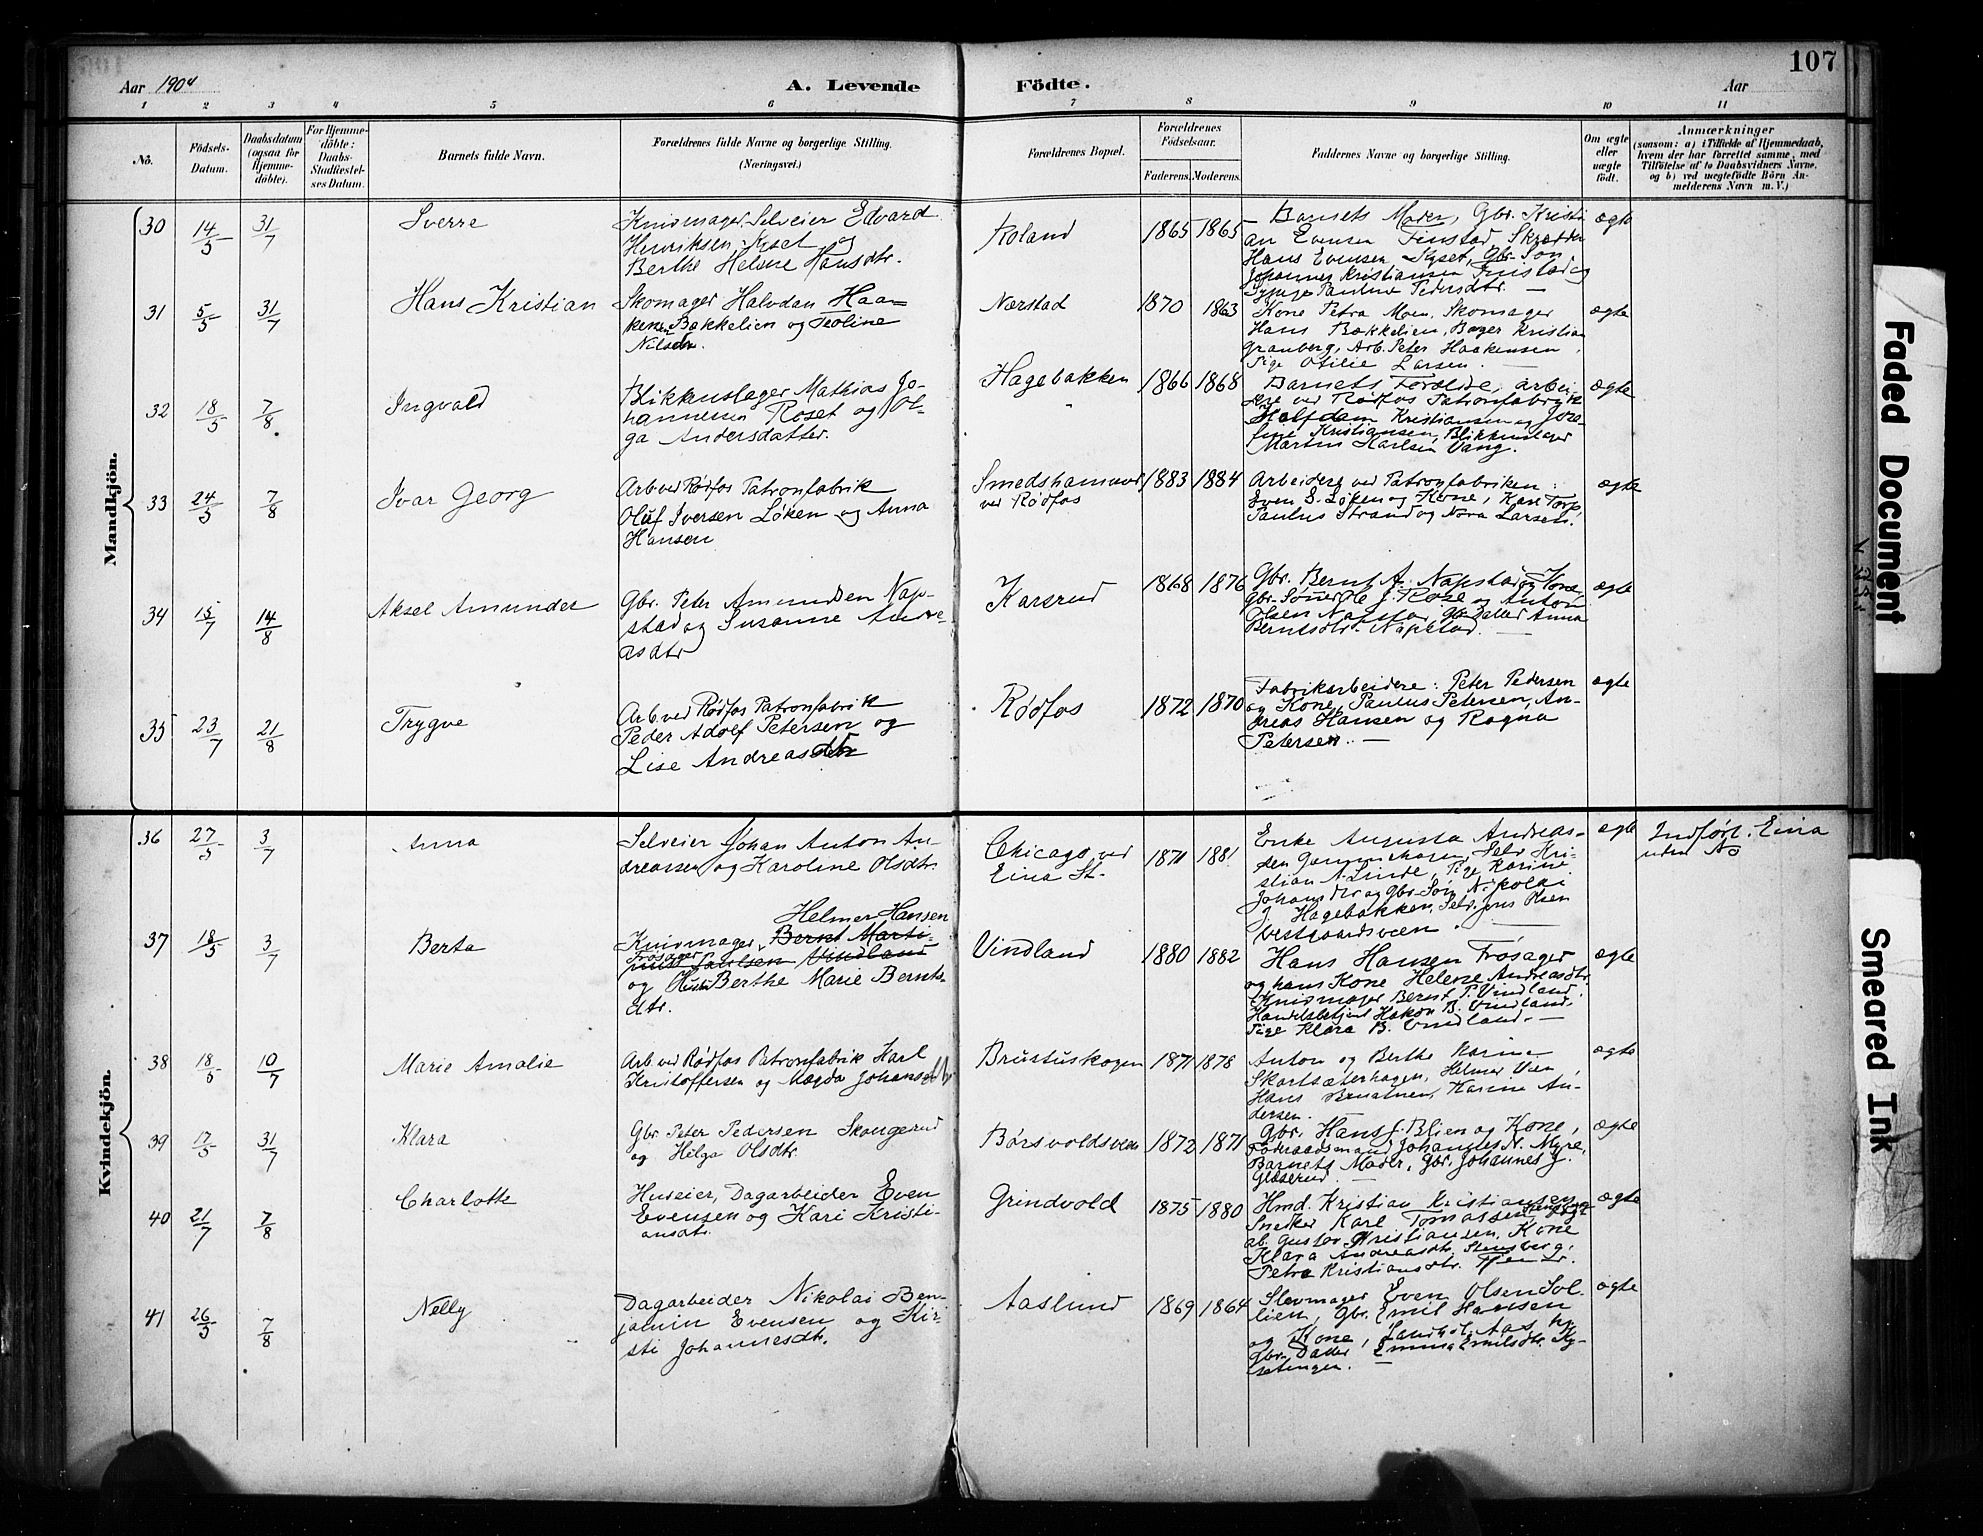 107
Aar 1904
A. Levende
Födte.
Aar
1 2 3 4 5 6 7 8 9 10 11
No.
Födsels-Datum.
Daabsdatum (ogsaa for Hjemme-döbte).
For Hjemme-döbte: Daabs-Stadfæstel-ses Datum.
Barnets fulde Navn.
Forældrenes fulde Navne og borgerlige Stilling.
(Næringsvei.)
Forældrenes Bopæl.
Forældrenes Födselsaar.
Faderens. Moderens.
Faddernes Navne og borgerlige Stilling.
Om ægte eller uægte födt.
Anmærkninger
(saasom: a) i Tilfælde af Hjemmedaab,
hvem der har forrettet samme, med
Tilföielse af to Daabsvidners Navne,
og b) ved uægtefödte Börn An-
melderens Navn m. V.)
Mandkjön.
30 14/5 31/7 Sverre
Knivmager, Selveier Edvard
Henriksen Kyset og
Berthe Helene Hansdtr.
Roland 1865 1865
Barnets Moder, Gbr. Kristi
an Evensen Finstad, Skrædder
Hans Evensen Kyset, Gbr. Søn
Johannes Kristiansen Finstad og
Pige Pauline Pedersdtr. —
ægte
31 5/5 31/7 Hans Kristian
Skomager Halvdan Haa-
kensen Bakkelien og Teoline
Nilsdtr.
Nærstad 1870 1863
Kone Petra Moen, Skomager
Hans Bakkelien, Bager Kristian
Granberg, Arb. Peter Haakensen,
Pige Otilie Larsen. —
ægte
32 18/5 7/8 Ingvald
Blikkenslager Mathias Jo-
hannesen Roset og Ol-
ga Andersdatter.
Hagebakken 1866 1868
Barnets Forældre, arbei-
dere ved Rødfos Patronfabrik
Halfdan Kristiansen og Jose-
fine Kristiansen, Blikkenslager
Martin Karlsen Vang.
ægte
33 24/5 7/8 Ivar Georg
Arb. ved Rødfos Patronfabrik
Oluf Iversen Løken og Anna
Hansen
Smedshammer
ved Rødfos
1883 1884
Arbeidere ved Patronfabriken:
Sven S. Løken og Kone, Karl Torp,
Paulus Strand og Nora Larsen.
ægte
34 15/7 14/8 Aksel Amunder
Gbr. Peter Amundsen Nap-
stad og Susanne Andre-
asdtr
Karsrud 1868 1876
Gbr. Bernt A. Napstad og Kone,
Gbr. Sønner Ole J. Rose og Anton
Olsen Napstad, Gbr. Datter Anna
Berntsdtr. Napstad. —
ægte
35 23/7 21/8 Trygve
Arb. ved Rødfos Patronfabrik
Peder Adolf Petersen og
Lise Andreasdtr
Rødfos 1872 1870
Fabrikarbeidere: Peter Pedersen
og Kone, Paulus Petersen, An-
dreas Hansen og Ragna
Petersen. —
ægte
Kvindekjön.
36 27/5 3/7 Anna
Selveier Johan Anton An-
dreassen og Karoline Olsdtr.
Chicago ved
Eina St.
1871 1881
Enke Augusta Andreas-
den Gammehagen, Selv. Kri-
stian A. Linde, Pige Karine
Johansdtr og Gbr. Søn Nikolai
J. Hagebakken, Selv. Jens Olsen
Vestgaardsveen. —
ægte
Indført. Eina
uden No
37 18/5 3/7 Berta
Helmer Hansen
Knivmager, Bernt Marti-
Frøsager
nus Paulsen Vindland
og Hustru Berthe Marie Bernts-
dtr.
Vindland 1880 1882
Hans Hansen Frøsager
og hans Kone Helene Andreasdtr.
Knivmager Bernt P. Vindland,
Handelsbetjent Hakon B. Vindland,
Pige Klara B. Vindland. —
ægte
38 18/5 10/7 Marie Amalie
Arb. ved Rødfos Patronfabrik Karl
Kristoffersen og Magda Johansdtr
Brustuskogen 1871 1878
Anton og Berthe Karine
Skartsæterhagen, Helmer Vien,
Hans Brustuen, Karine An-
dersen.
ægte
39 17/5 31/7 Klara
Gbr. Peter Pedersen Skougerud
og Helga Olsdtr.
Børsvoldsveen 1872 1871
Gbr. Hans J. Blien og Kone,
Føderaadsmand Johannes N. Myre,
Barnets Moder, Gbr. Johannes J.
Glæserud. —
ægte
40 21/7 7/8 Charlotte
Huseier, Dagarbeider Even
Evensen og Kari Kristi-
ansdtr.
Grindvold 1875 1880
Hmd. Kristian Kristiansen
Snedker Karl Tomassen
ab. Gustav Kristiansen, Kone
Klara Andreasdtr. Stensberg,
Petra Kristiansdtr.
ægte
41 26/5 7/8 Nelly
Dagarbeider Nikolai Ben-
jamin Evensen og Kir-
sti Johannesdtr.
Aaslund 1869 1864
Slevmager Even Olsen Sol-
lien, Gbr. Emil Hansen
og Kone, Aas og
Gbr. Datter Emma Emilsdtr. Ky-
setengen.
ægte
Faded Document
Smeared Ink